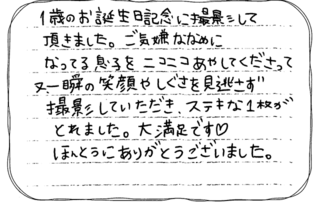 1歳のお誕生日記念に撮影して
頂きました。ご気嫌ななめに
なってる息子をニコニコあやしてくださって
又一瞬の笑顔やしぐさを見逃さず
撮影していただき、ステキな1枚が
とれました。大満足です♡
ほんとうにありがとうございました。